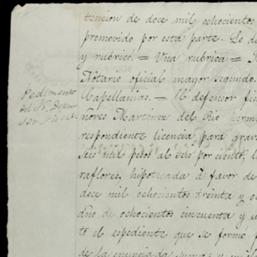 tencion de doce mil ochocientos
promovido por esta parte. Se de
y rubricó. — Una rubrica. —
Notario oficial mayor segundo.
Capellanias. — El defensor fis
Pedimento
del Sr. Defen
ñores Martinez del Rio herm
respondiente licencia para grava
seis mil pesos al seis por ciento, l
raflores, hipotecada á favor de
doce mil ochocientos treinta y o
año de ochocientos cincuenta y se
to el espediente que se formó p